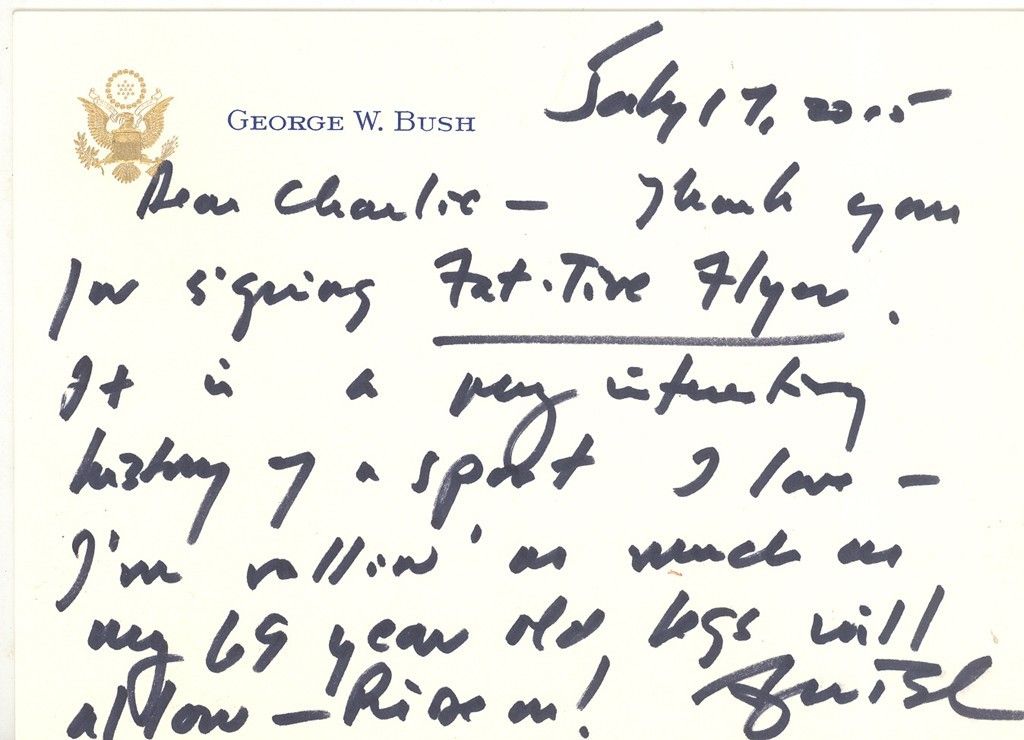 GEORGE W. BUSH
July 17, 2015
Dear Charlie — Thank you
for signing Fat-Tire Flyer.
It is a very interesting
history of a sport I love —
I'm rollin' as much as
my 69 year old legs will
allow — Ride on!